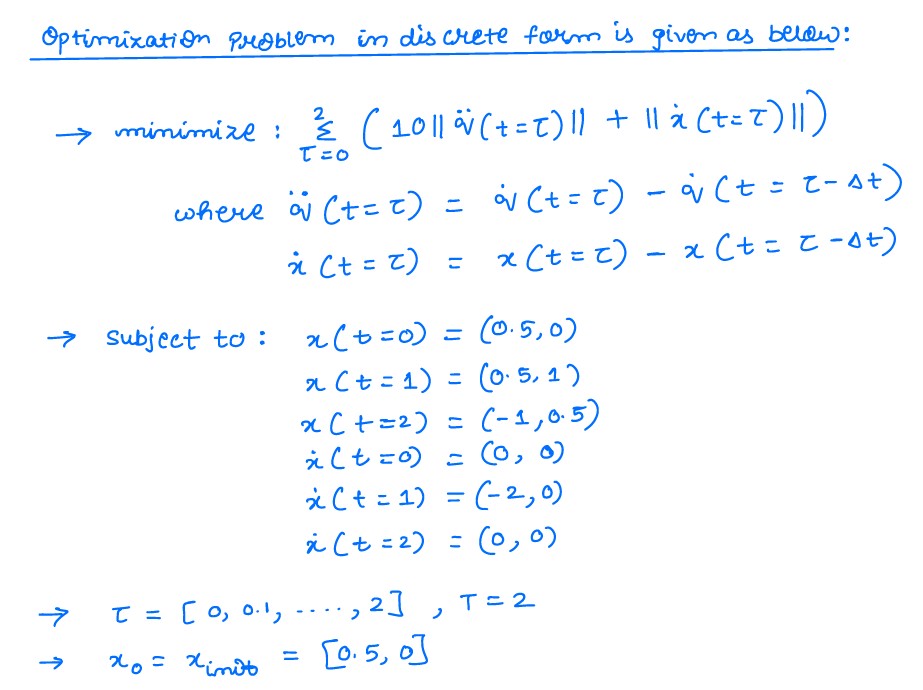 Optimization Problem in discrete form is given as below:
→ minimize : 2 Σ τ=0 ( 10 || q̈ (t=τ) || + || ẋ (t=τ) || )
where q̈ (t=τ) = q̇ (t=τ) - q̇ (t = τ-Δt)
ẋ (t=τ) = x (t=τ) - x (t = τ-Δt)
→ subject to : x (t=0) = (0.5, 0)
x (t=1) = (0.5, 1)
x (t=2) = (-1, 0.5)
ẋ (t=0) = (0, 0)
ẋ (t=1) = (-2, 0)
ẋ (t=2) = (0, 0)
→ τ = [0, 0.1, ...., 2] , T = 2
→ x₀ = x_init = [0.5, 0]